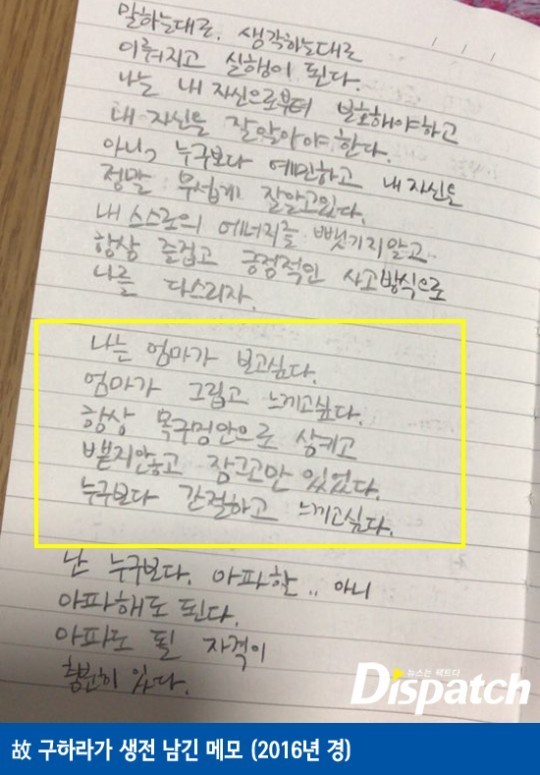 말하는대로. 생각하는대로
이뤄지고 실행이 된다.
나는 내 자신으로부터 보호해야하고
내 자신을 잘알아야한다.
아니? 누구보다 예민하고 내 자신은
정말 무섭게 잘알고있다.
내 스스로의 에너지를 뺏기지말고
항상 즐겁고 긍정적인 사고방식으로
나를 다스리자.
나는 엄마가 보고싶다.
엄마가 그립고 느끼고싶다.
항상 목구멍안으로 삼키고
뱉지안흥고 잠그고만 있었다.
누구보다 간절하고 느끼고싶다.
난 누구보다. 아파한.. 아니
아파해도 된다.
아파도 될 자격이
충분히 있다.
뉴스는 팩트다
Dispatch
故 구하라가 생전 남긴 메모 (2016년 경)